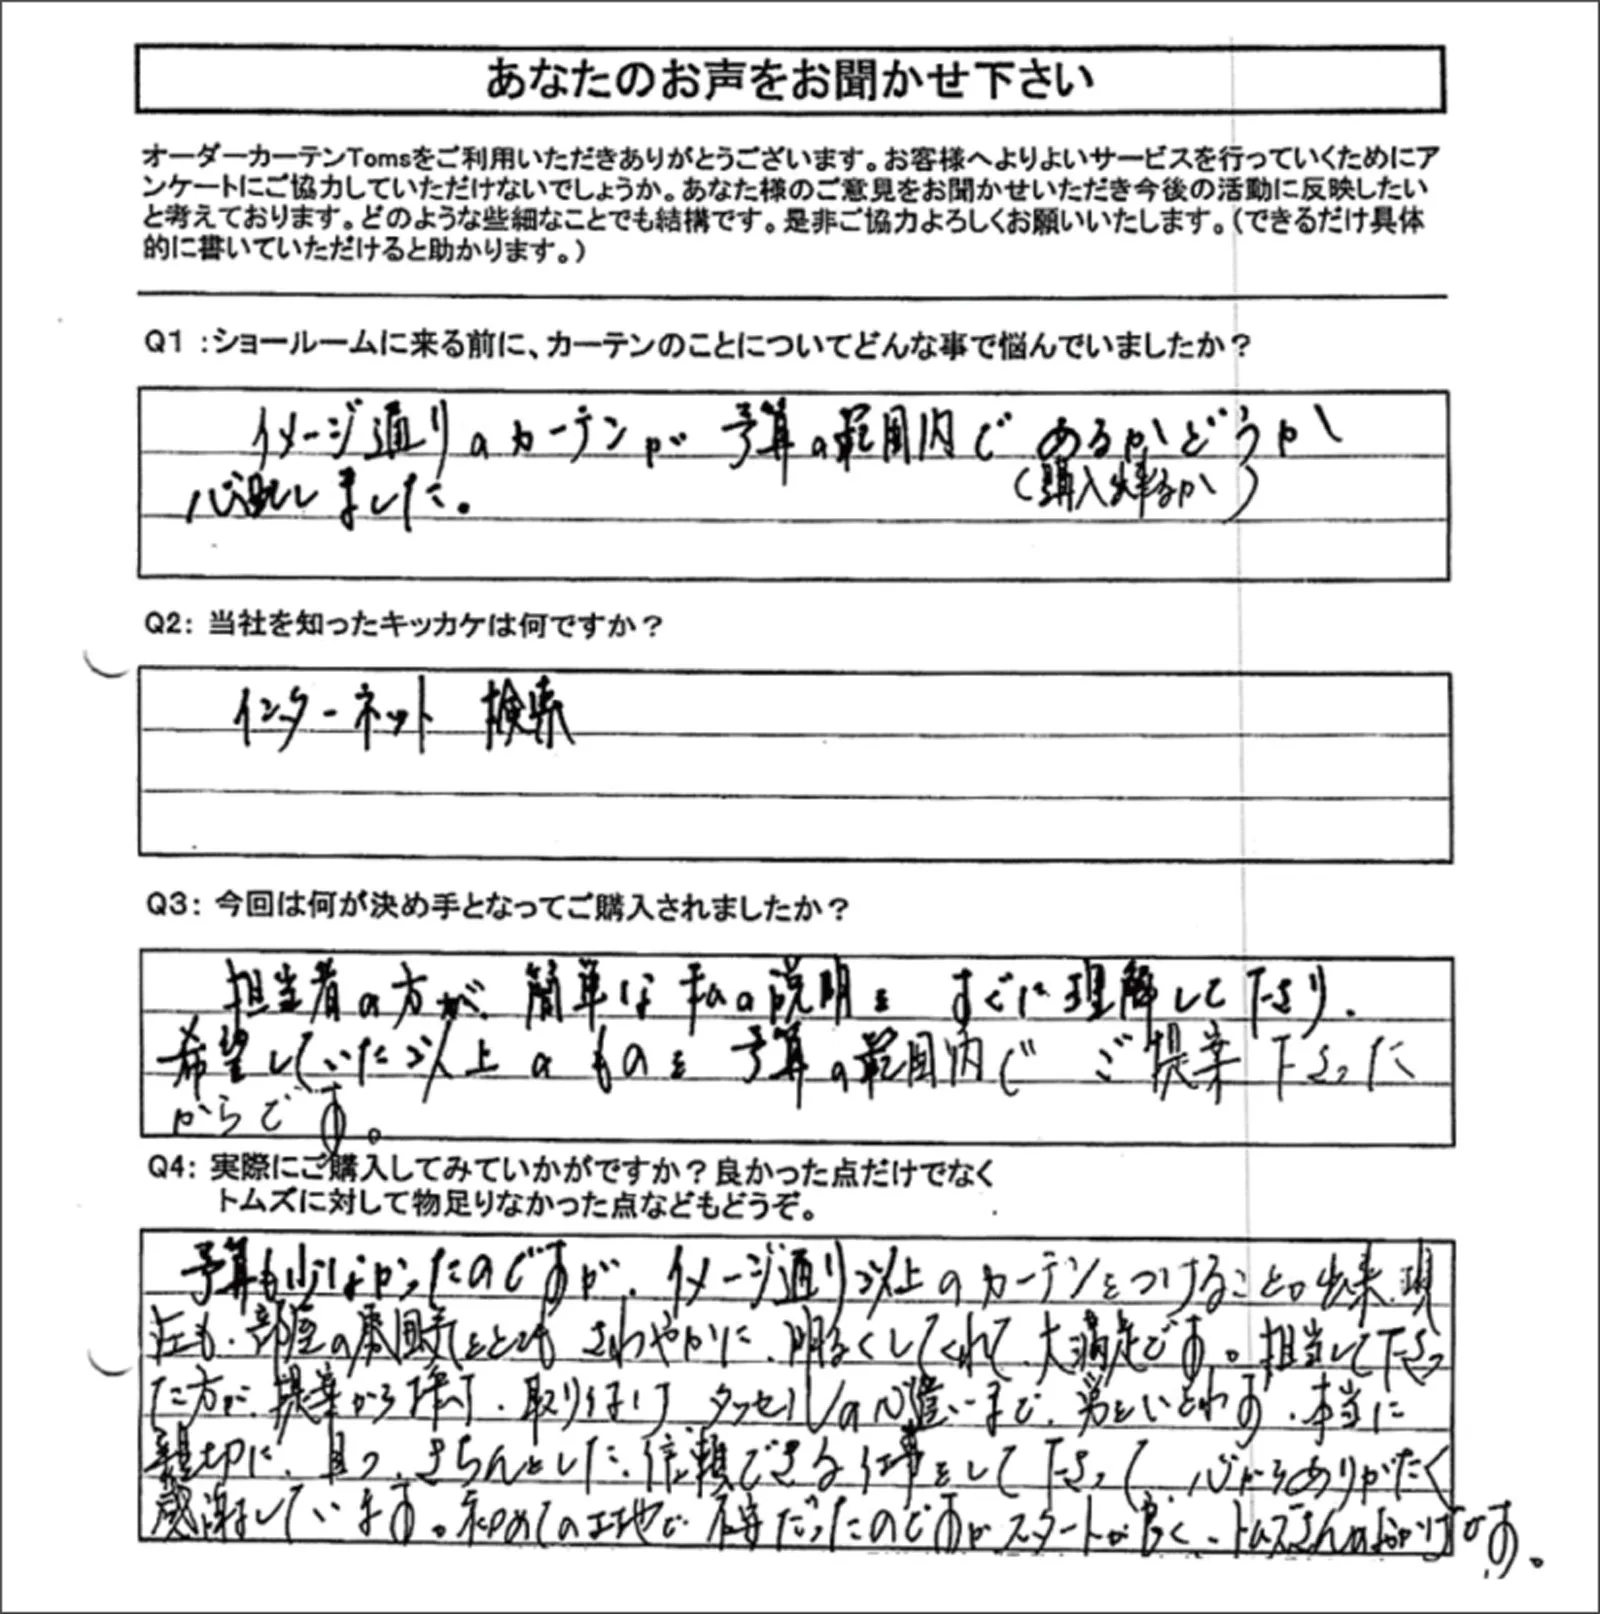 あなたのお声をお聞かせ下さい
オーダーカーテンTomsをご利用いただきありがとうございます。お客様へよりよいサービスを行っていくためにア
ンケートにご協力していただけないでしょうか。あなた様のご意見をお聞かせいただき今後の活動に反映したい
と考えております。どのような些細なことでも結構です。是非ご協力よろしくお願いいたします。(できるだけ具体
的に書いていただけると助かります。)
Q1 :ショールームに来る前に、カーテンのことについてどんな事で悩んでいましたか?
イメージ通りのカーテンが 予算の範囲内で あるかどうか
(購入出来るか)
心配しました。
Q2: 当社を知ったキッカケは何ですか?
インターネット 検索
Q3: 今回は何が決め手となってご購入されましたか?
担当者の方が、簡単な私の説明を すぐに理解して下さり、
希望していた以上のものを 予算の範囲内で ご提案下さった
からです。
Q4: 実際にご購入してみていかがですか?良かった点だけでなく
トムズに対して物足りなかった点などもどうぞ。
予算も少なかったのですが、イメージ通り以上のカーテンをつけることが出来、現
在も、部屋の雰囲気をとても さわやかに、明るくしてくれて、大満足です。担当して下さっ
た方が、提案から 取り付け、タッセルの心遣いまで、労をいとわず、本当に
親切に、且つ、きちんとした、信頼できる仕事をして下さって 心からありがたく
感謝しています。初めての土地で 不安だったのですが スタートが良く、トムズさんのおかげです。